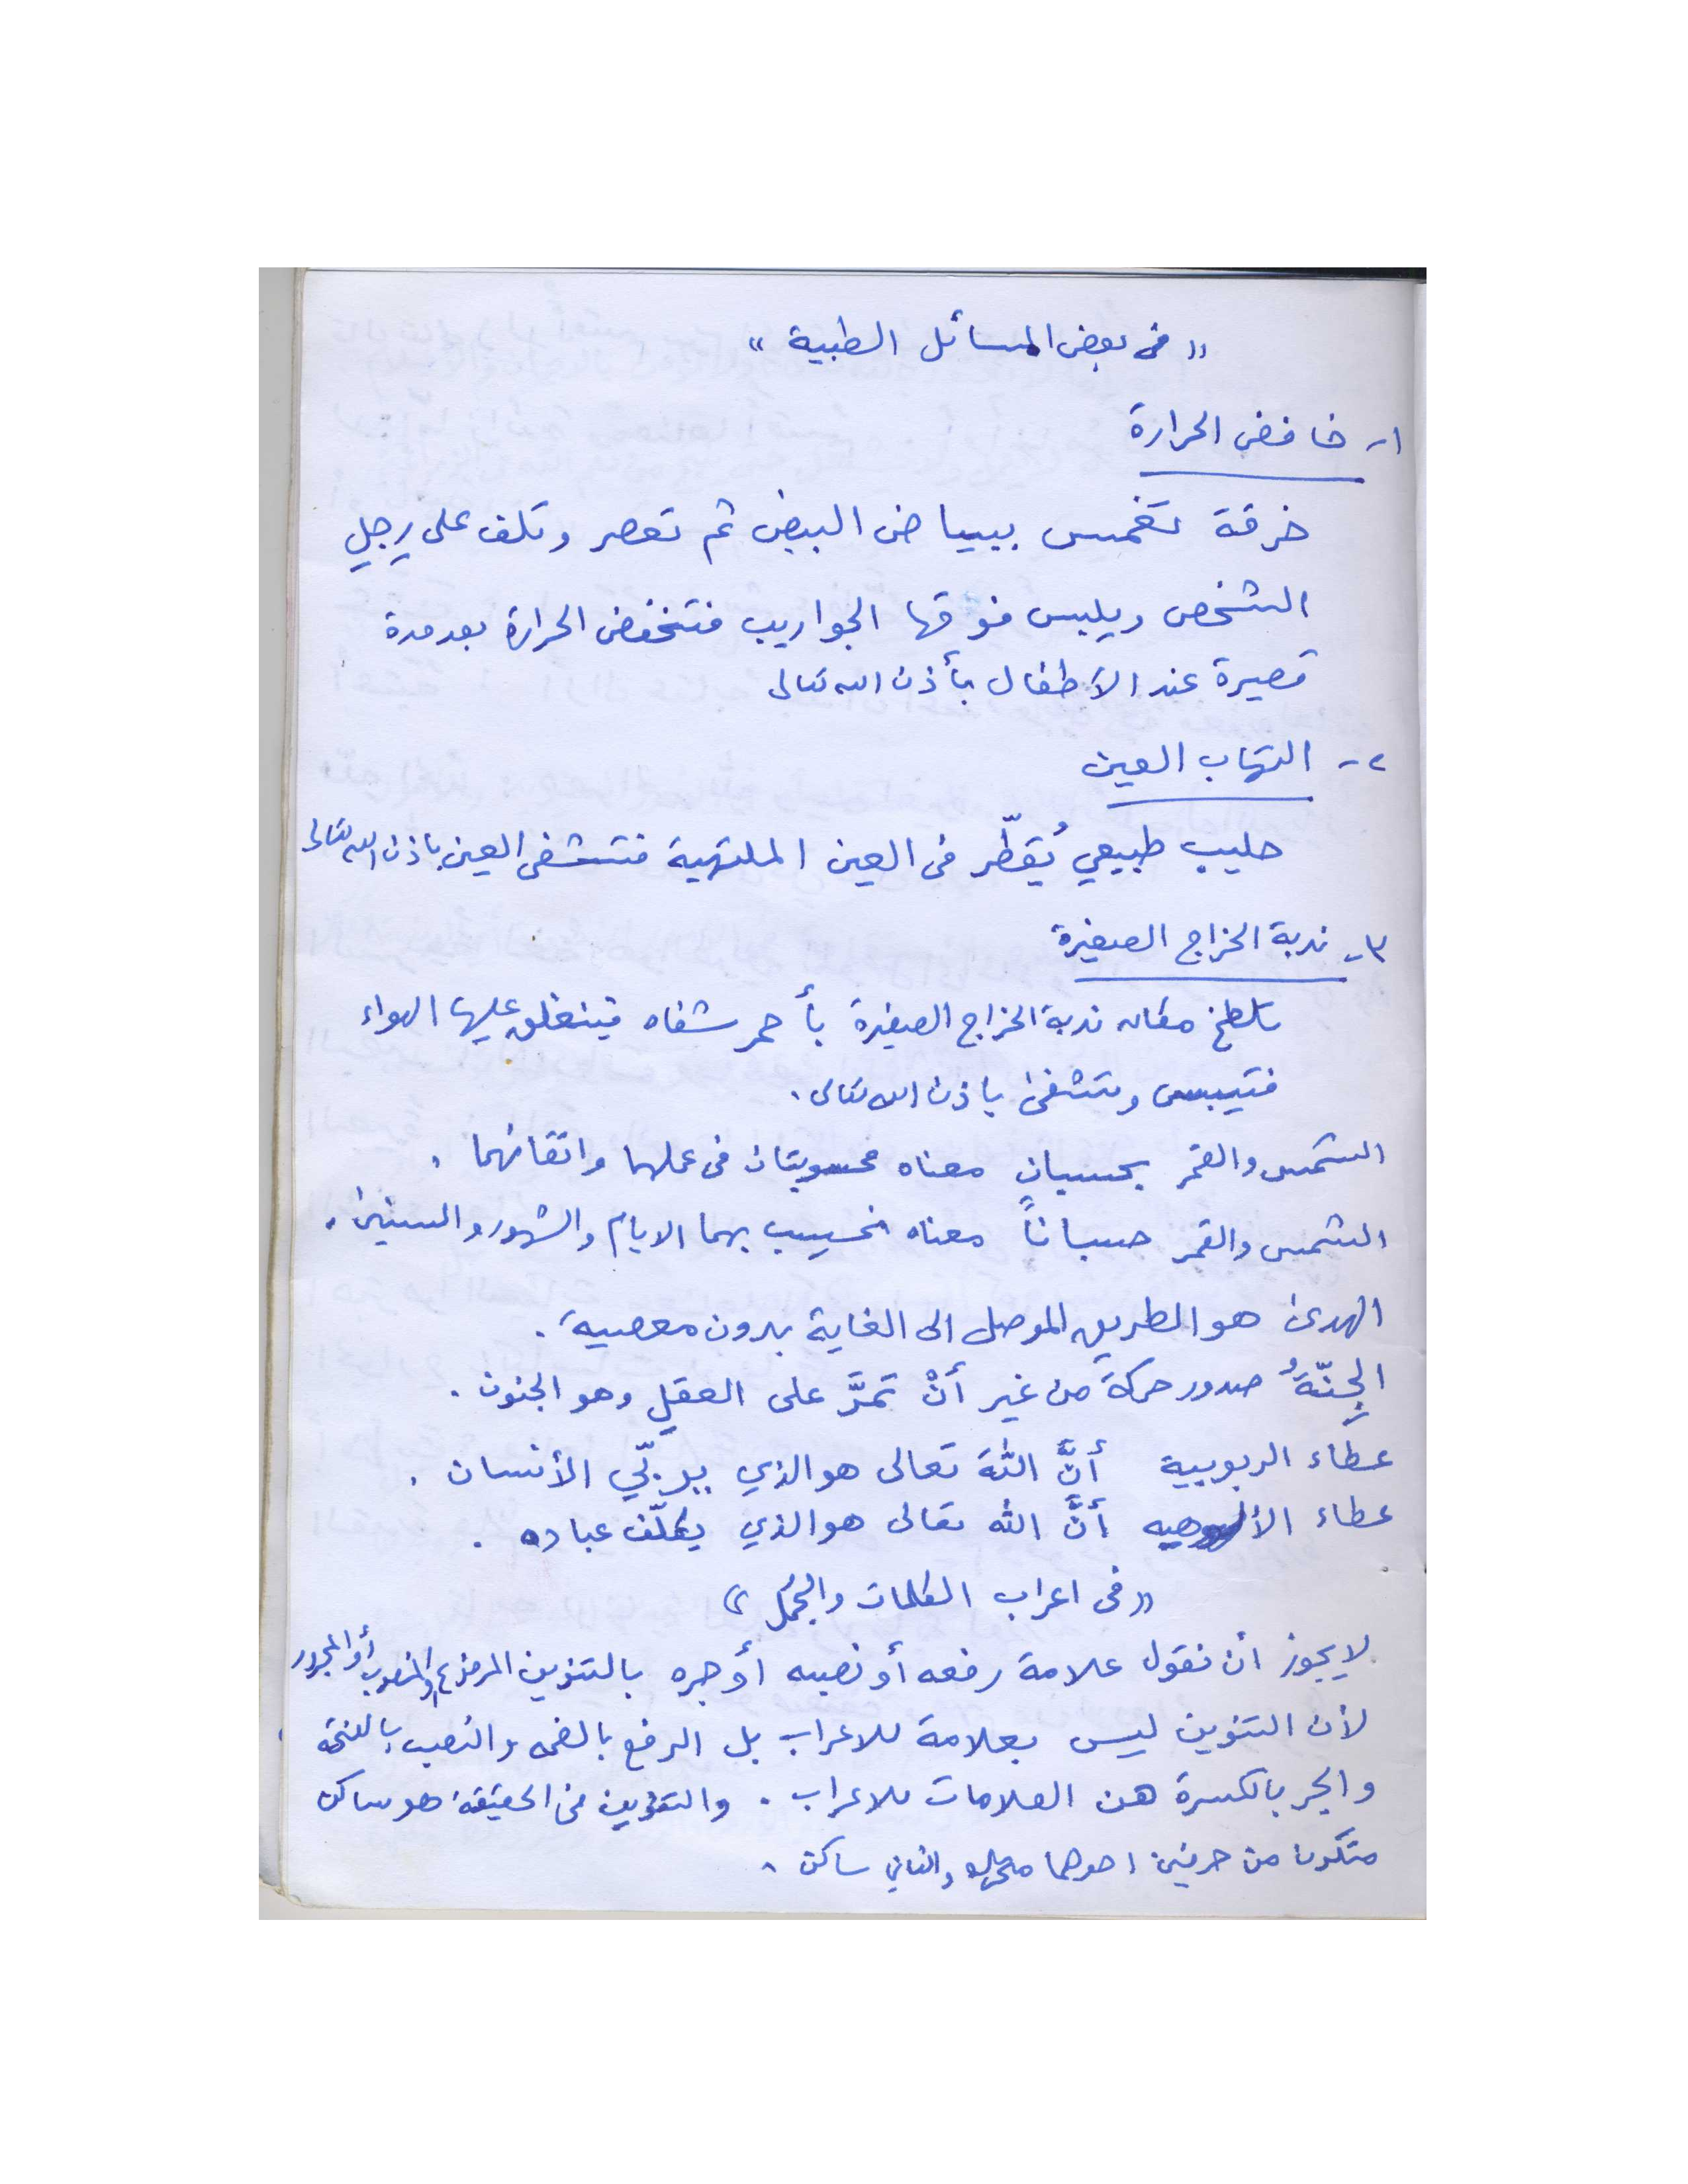 « في بعض المسائل الطبية »
١- خافض الحرارة
خرقة تغمس ببياض البيض ثم تعصر وتلف على رجلي
الشخص ويلبس فوقها الجواريب فتنخفض الحرارة بعد مدة
قصيرة عند الأطفال بأذن الله تعالى
٢- التهاب العين
حليب طبيعي يُقطّر في العين الملتهبة فتشفى العين باذن الله تعالى
٣- ندبة الخراج الصغيرة
يلطخ مكان ندبة الخراج الصغيرة بأحمر شفاه فينغلق عليها الهواء
فتيبس وتشفى باذن الله تعالى .
الشمس والقمر بحسبانٍ معناه محسوبتان في عملهما واتقانهما .
الشمس والقمر حسباناً معناه نحسب بهما الايام والشهور والسنين .
الهدى هو الطريق الموصل الى الغاية بدون معصية .
الجِنّةُ صدور حركة من غير أنْ تمرَّ على العقل وهو الجنون .
عطاء الربوبية أنَّ اللهَ تعالى هو الذي يربّي الأنسان .
عطاء الألوهيه أنَّ الله تعالى هو الذي يكلّف عباده .
« في اعراب الكلمات والجُمل »
لا يجوز أن نقول علامة رفعه أو نصبه أو جره بالتنوين المرفوع أو المنصوب أو المجرور
لأن التنوين ليس بعلامة للاعراب بل الرفع بالضمه والنصب بالفتحه
والجر بالكسرة هن العلامات للاعراب . والتنوين في الحقيقة هو ساكن
متكون من حرفين احدهما متحرك والثاني ساكن .